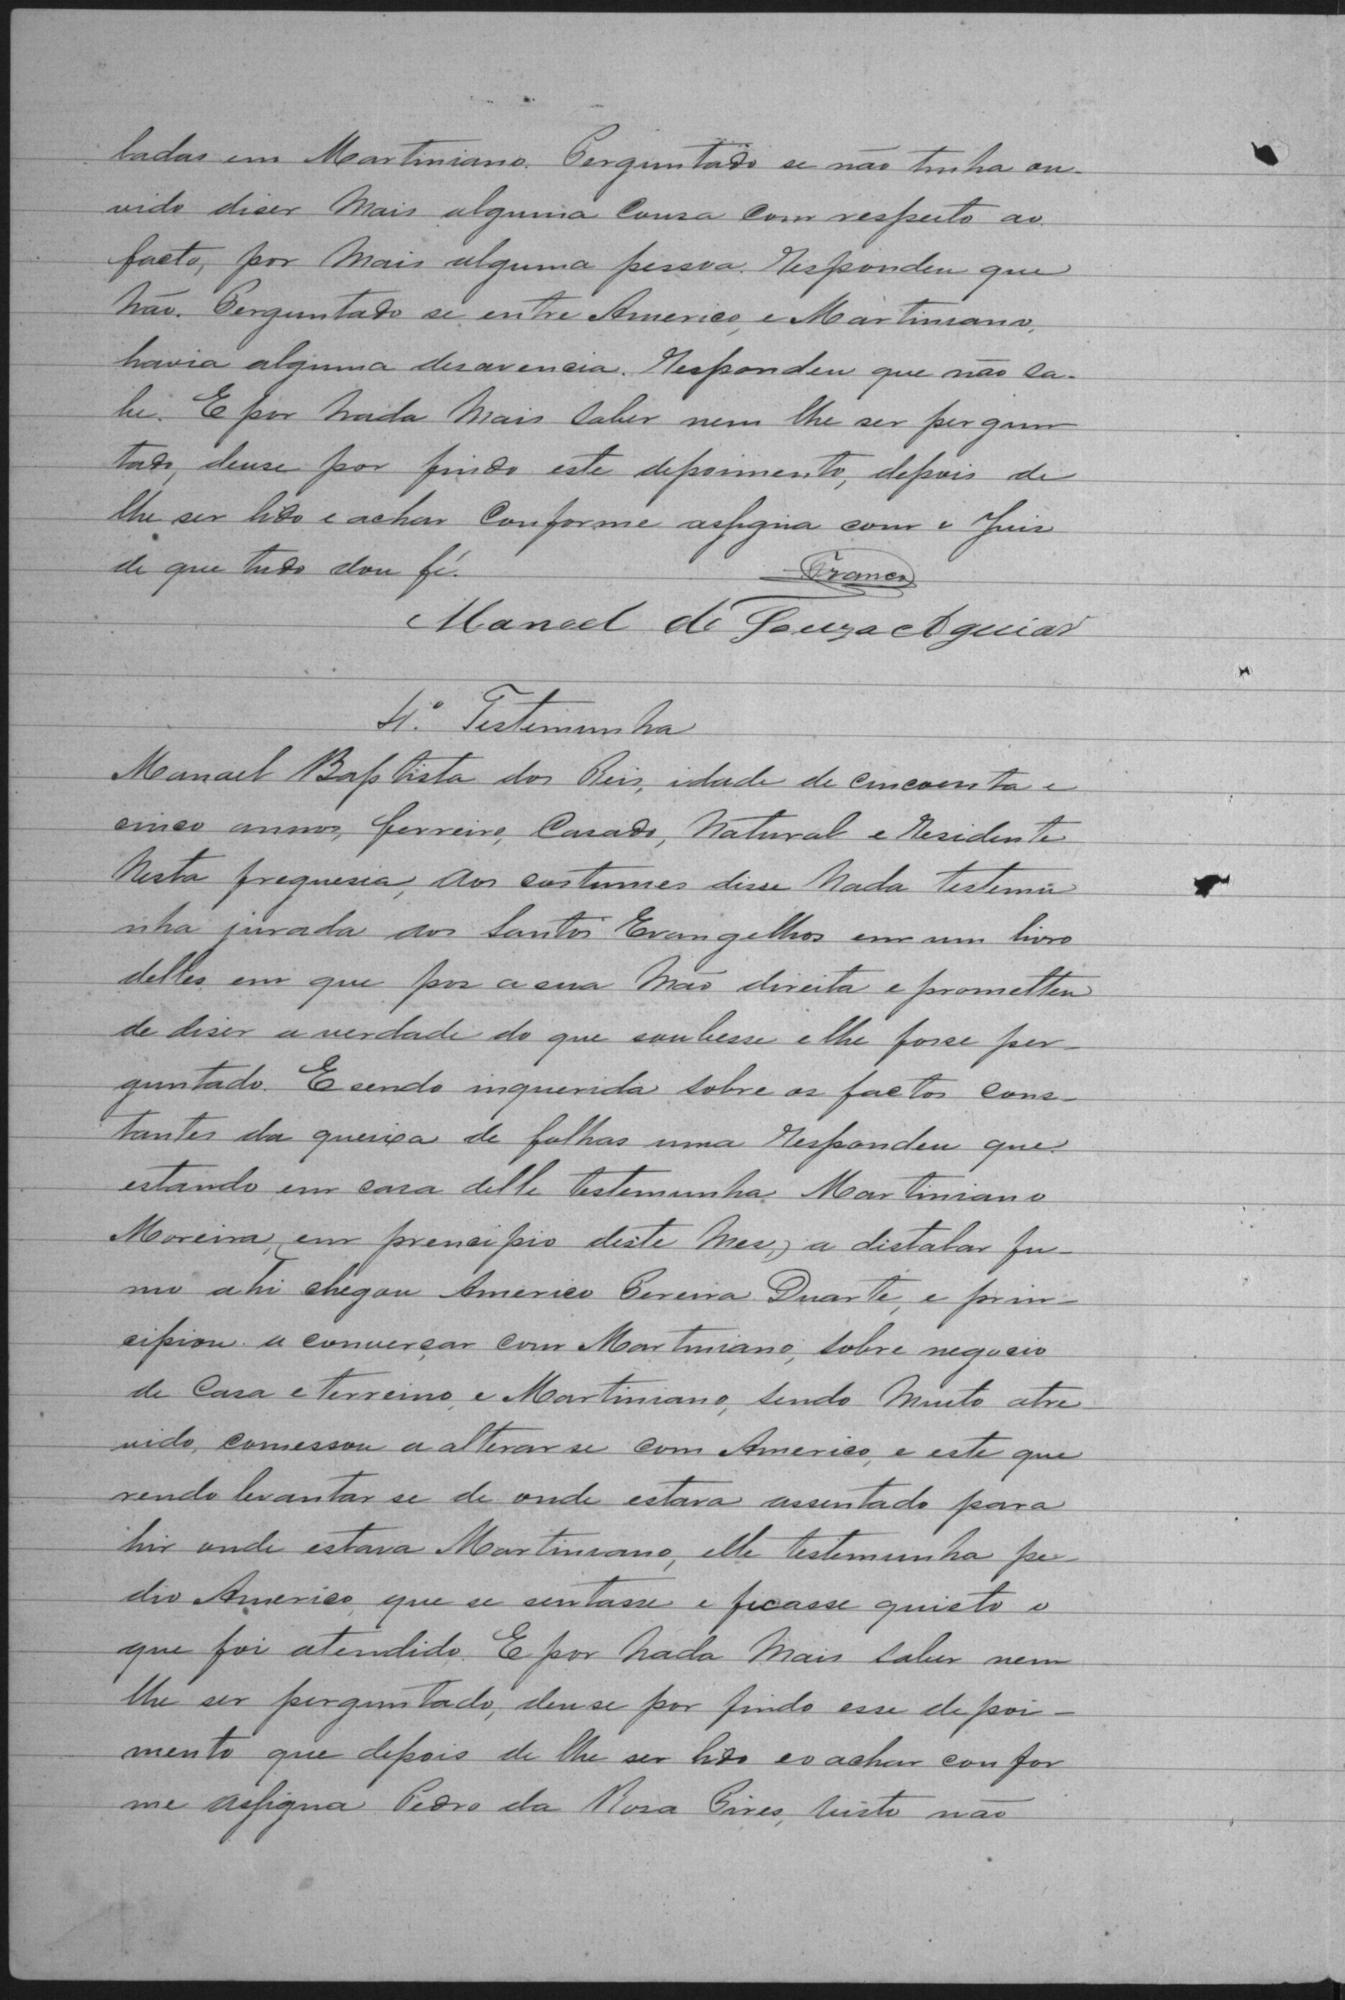 badas em Martiniano. Perguntado se não tinha ou-
vido diser mais alguma cousa com respeito ao
facto, por mais alguma pessoa. Respondeu que
não. Perguntado se entre Americo, e Martiniano,
havia alguma desavencia. Respondeu que não sa-
be. E por nada mais saber nem lhe ser pergun-
tado, deuse por findo este depoimento, depois de
lhe ser lido e achar conforme assigna com o Juis
de que tudo dou fé.
Franco
Manoel de Souza Aguiar
4.º Testimunha
Manael Baptista dos Reis, idade de cincoenta e
cinco annos, ferreiro, Casado, natural e residente
nesta freguesia, aos costumes disse nada testemu
nha jurada aos Santos Evangelhos em um livro
delles em que pos a sua mão direita e prometteu
de diser a verdade do que soubesse e lhe fosse per-
guntado. E sendo inquerida sobre os factos cons-
tantes da queixa de folhas uma respondeu que
estando em casa delle testemunha Martiniano
Moreira, (em prencipio deste mes,) a distalar fu-
mo ahi chegou Americo Pereira Duarte, e prin-
cipiou a converçar com Martiniano, sobre negocio
de Casa e terreino, e Martiniano, sendo muito atre
vido, comessou a alterar se com Americo, e este que
rendo levantar se de onde estava assentado para
hir onde estava Martiniano, elle testemunha pe-
dio Americo, que se sentasse e ficasse quieto o
que foi atendido. E por nada mais saber nem
lhe ser perguntado, deuse por findo esse depoi-
mento que depois de lhe ser lido e o achar confor
me assigna Pedro da Rosa Pires, visto não